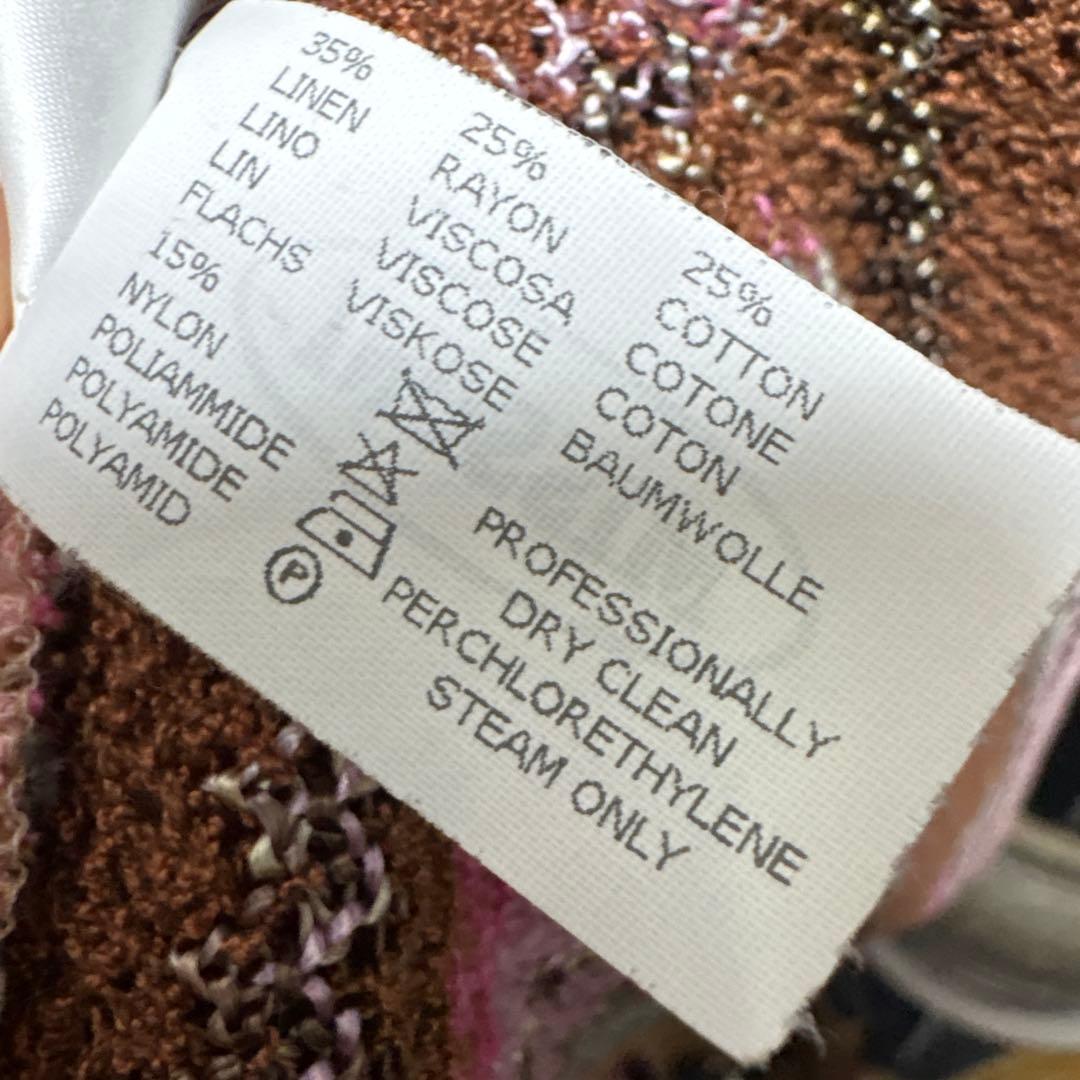 35%
LINEN
LINO
LIN
FLACHS
15%
NYLON
POLIAMMIDE
POLYAMIDE
POLYAMID
25%
RAYON
VISCOSA
VISCOSE
VISKOSE
25%
COTTON
COTONE
COTON
BAUMWOLLE
P
PROFESSIONALLY
DRY CLEAN
PERCHLORETHYLENE
STEAM ONLY